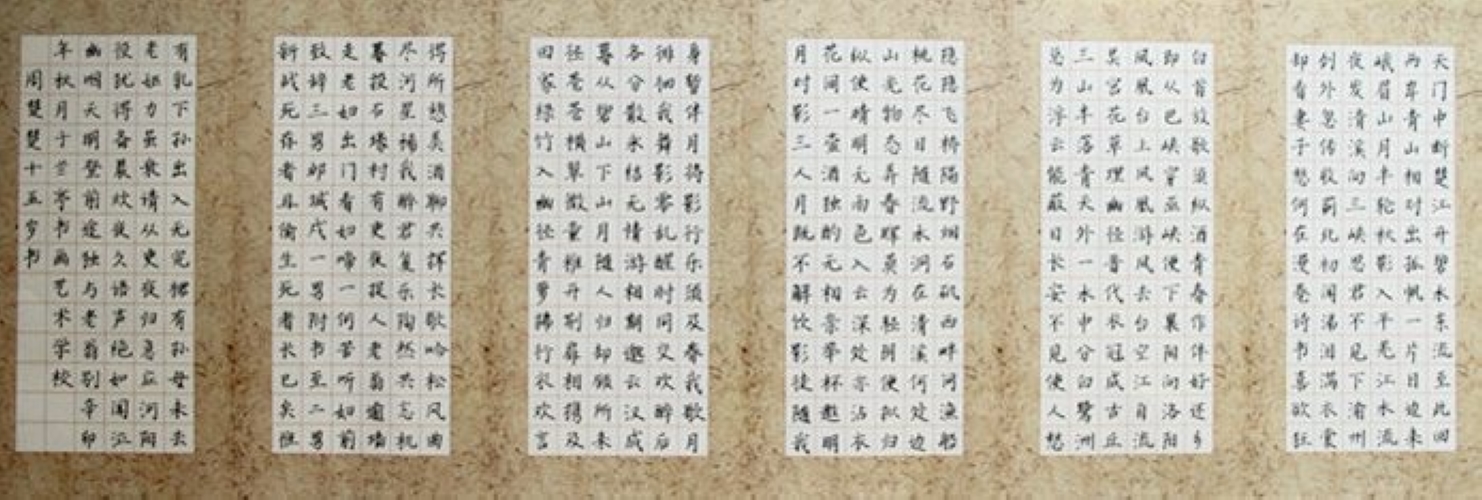 天门中断楚江开碧水东流至此回
两岸青山相对出孤帆一片日边来
峨眉山月半轮秋影入平羌江水流
夜发清溪向三峡思君不见下渝州
剑外忽传收蓟北初闻涕泪满衣裳
却看妻子愁何在漫卷诗书喜欲狂
白首放歌须纵酒青春作伴好还乡
即从巴峡穿巫峡便下襄阳向洛阳
凤凰台上凤凰游凤去台空江自流
吴宫花草埋幽径晋代衣冠成古丘
三山半落青天外一水中分白鹭洲
总为浮云能蔽日长安不见使人愁
隐隐飞桥隔野烟石矶西畔问渔船
桃花尽日随流水洞在清溪何处边
山光物态弄春晖莫为轻阴便拟归
纵使晴明无雨色入云深处亦沾衣
花间一壶酒独酌无相亲举杯邀明
月对影三人月既不解饮影徒随我
身暂伴月将影行乐须及春我歌月
徘徊我舞影零乱醒时同交欢醉后
各分散永结无情游相期邈云汉成
暮从碧山下山月随人归却顾所来
径苍苍横翠微童稚开荆扉相携及
田家绿竹入幽径青萝拂行衣欢言
得所憩美酒聊共挥长歌吟松风曲
尽河星稀我醉君复乐陶然共忘机
暮投石壕村有吏夜捉人老翁逾墙
走老妇出门看妇啼一何苦听妇前
致辞三男邺城戍一男附书至二男
新战死存者且偷生死者长已矣惟
有乳下孙出入无完裙有孙母未去
老妪力虽衰请从吏夜归急应河阳
役犹得备晨炊夜久语声绝如闻泣
幽咽天明登前途独与老翁别辛卯
年秋月于兰亭书画艺术学校
周楚楚十五岁书